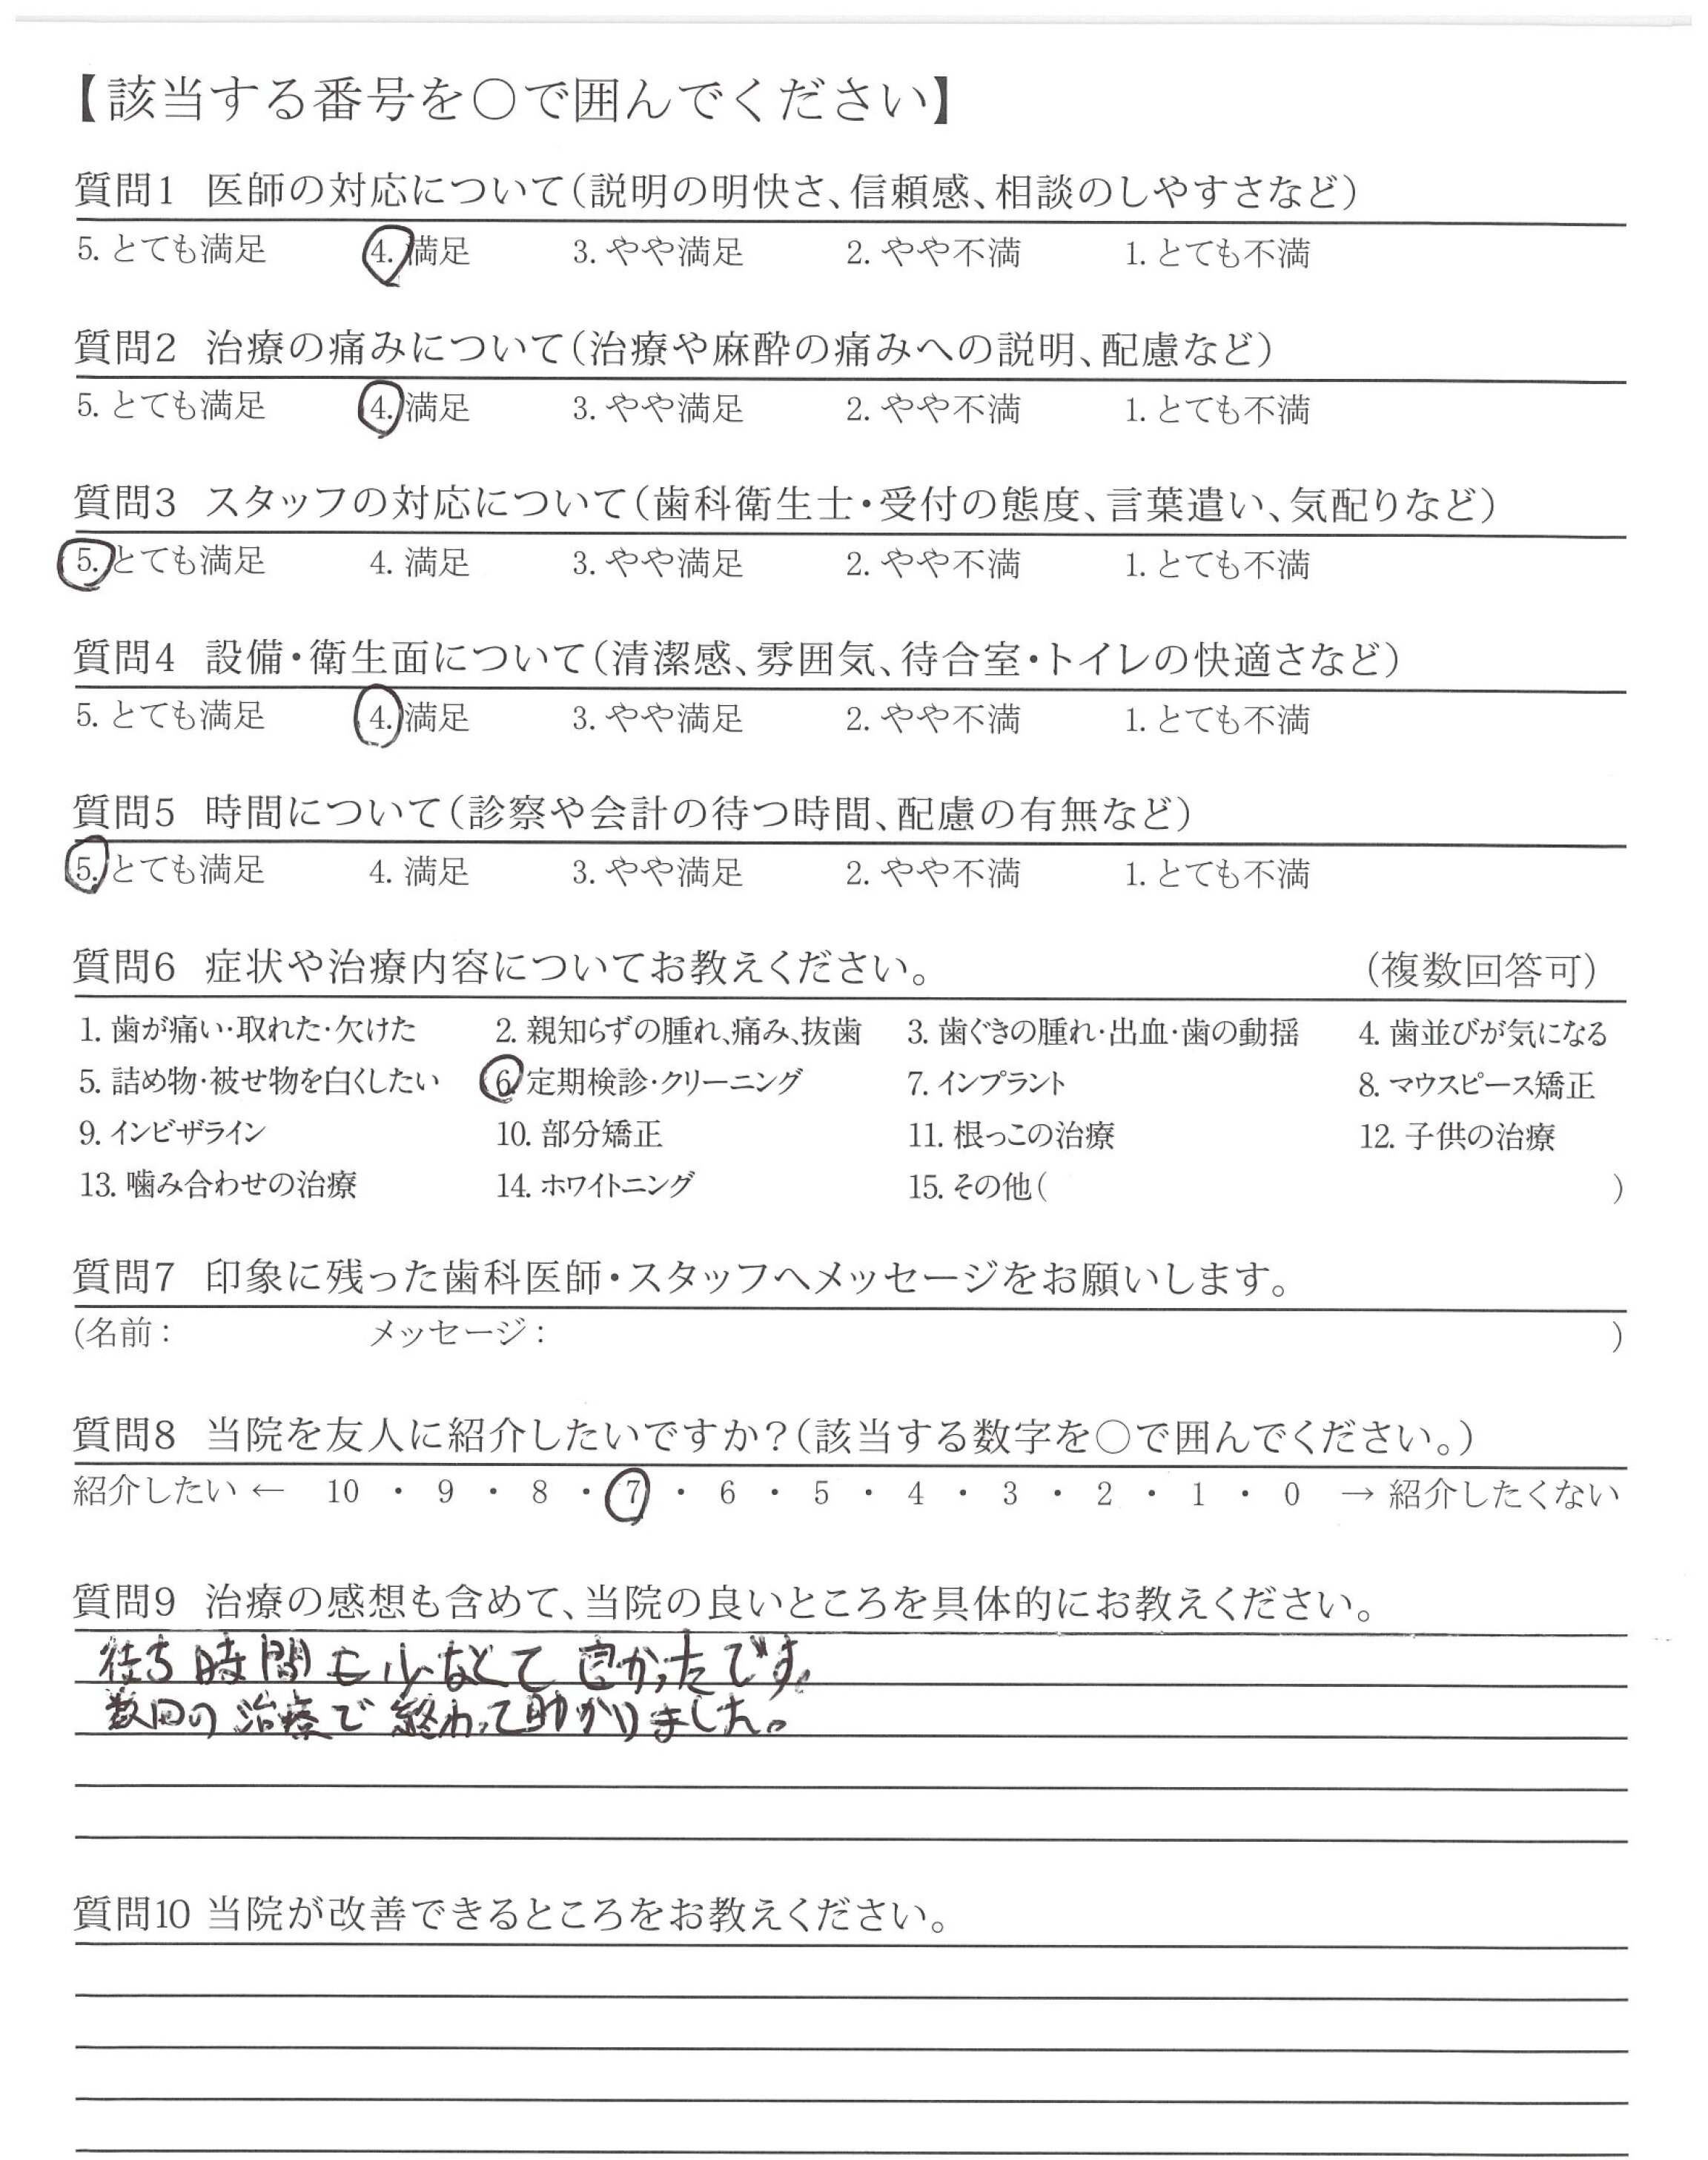 【該当する番号を〇で囲んでください】
質問1 医師の対応について(説明の明快さ、信頼感、相談のしやすさなど)
5. とても満足 4. 満足 3. やや満足 2. やや不満 1. とても不満
質問2 治療の痛みについて(治療や麻酔の痛みへの説明、配慮など)
5. とても満足 4. 満足 3. やや満足 2. やや不満 1. とても不満
質問3 スタッフの対応について(歯科衛生士・受付の態度、言葉遣い、気配りなど)
5. とても満足 4. 満足 3. やや満足 2. やや不満 1. とても不満
質問4 設備・衛生面について(清潔感、雰囲気、待合室・トイレの快適さなど)
5. とても満足 4. 満足 3. やや満足 2. やや不満 1. とても不満
質問5 時間について(診察や会計の待つ時間、配慮の有無など)
5. とても満足 4. 満足 3. やや満足 2. やや不満 1. とても不満
質問6 症状や治療内容についてお教えください。 (複数回答可)
1. 歯が痛い・取れた・欠けた 2. 親知らずの腫れ、痛み、抜歯 3. 歯ぐきの腫れ・出血・歯の動揺 4. 歯並びが気になる
5. 詰め物・被せ物を白くしたい 6. 定期検診・クリーニング 7. インプラント 8. マウスピース矯正
9. インビザライン 10. 部分矯正 11. 根っこの治療 12. 子供の治療
13. 噛み合わせの治療 14. ホワイトニング 15. その他( )
質問7 印象に残った歯科医師・スタッフへメッセージをお願いします。
(名前: メッセージ: )
質問8 当院を友人に紹介したいですか?(該当する数字を〇で囲んでください。)
紹介したい ← 10 ・ 9 ・ 8 ・ 7 ・ 6 ・ 5 ・ 4 ・ 3 ・ 2 ・ 1 ・ 0 → 紹介したくない
質問9 治療の感想も含めて、当院の良いところを具体的にお教えください。
待ち時間も少なくて良かったです。
数回の治療で終わって助かりました。
質問10 当院が改善できるところをお教えください。